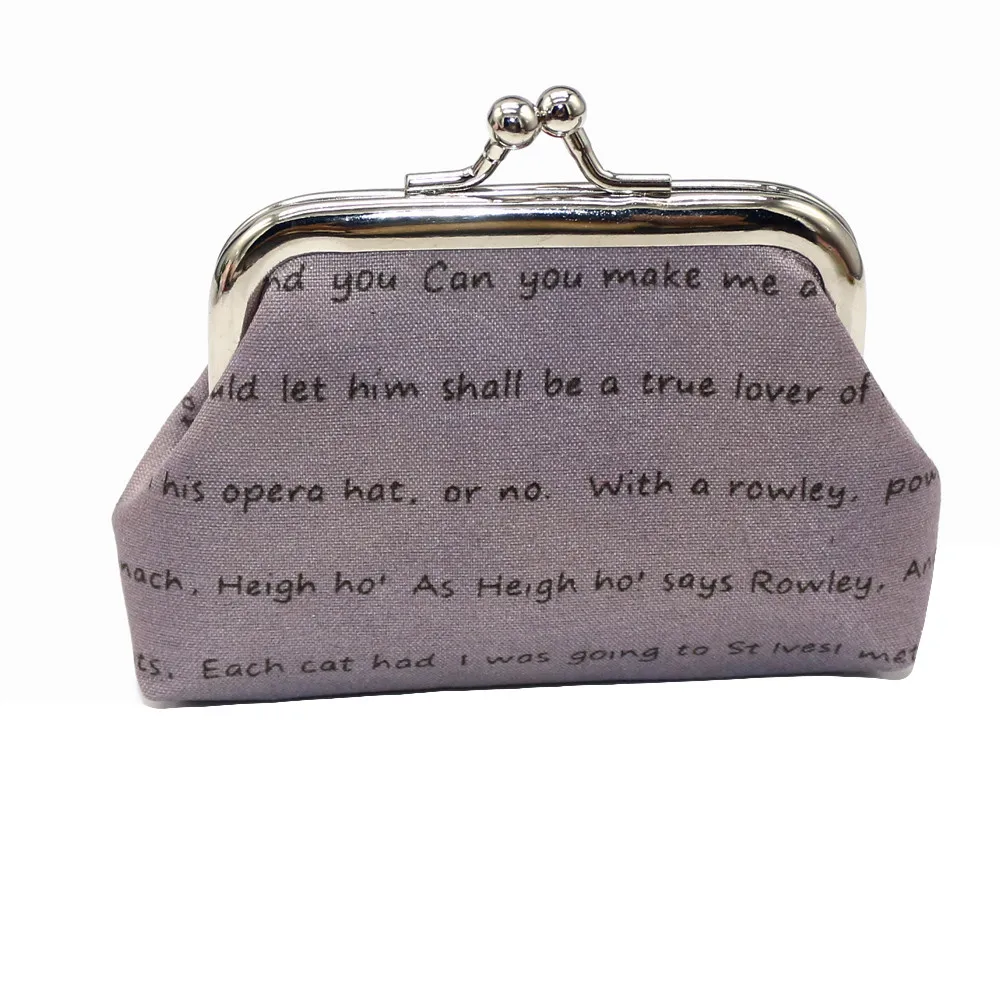 nd you Can you make me a
uld let him shall be a true lover of
his opera hat, or no. With a rowley, pow
mach, Heigh ho' As Heigh ho' says Rowley, An
ts, Each cat had I was going to St Ives! met